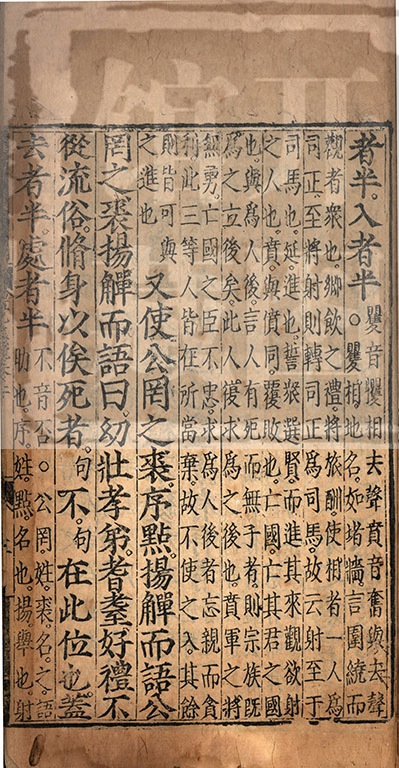 者半。入者半。矍音攫相去聲賁音奮與去聲
○矍相。地名。如堵牆。言圍繞而
觀者衆也。鄉飲之禮。將旅酬。使相者一人。為
司正。至將射。則轉司正為司馬。故云射至于
司馬也。延。進也。誓衆選賢而進其來觀欲射
之人也。賁。與僨同。覆敗也。亡國。亡其君之國
也。與為人後。言人有死而無子者。則宗族旣
為之立後矣。此人復求為之後也。賁軍之將
無勇。亡國之臣不忠。求為人後者。忘親而貪
利。此三等人。皆在所當棄。故不使之入。其餘
則皆可與
之進也
又使公罔之裘。序點。揚觶而語。公
罔之裘。揚觶而語曰。幼壯孝弟。耆耋好禮。不
從流俗。脩身以俟死者。句不。句在此位也。蓋
去者半。處者半。不音否。○公罔。姓。裘。名。之。語
助也。序。姓。點。名也。揚。舉也。射